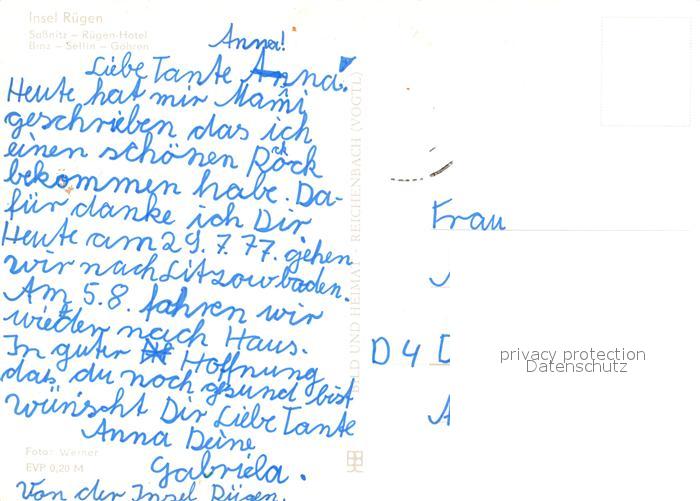 Insel Rügen
Saßnitz – Rügen-Hotel
Binz – Sellin – Göhren
Anna!
Liebe Tante Anna.
Heute hat mir Mami
geschrieben das ich
einen schönen Rock
bekommen habe. Da-
für danke ich Dir.
Heute am 29. 7. 77. gehen
wir nach Litzow baden.
Am 5.8. fahren wir
wieder nach Haus.
In guter Hoffnung
das du noch gesund bist
wünscht Dir Liebe Tante
Anna Deine
Gabriela.
Von der Insel Rügen.
Foto: Werner
EVP 0,20 M
BILD UND HEIMAT REICHENBACH (VOGTL)
Frau
D 4
privacy protection
Datenschutz